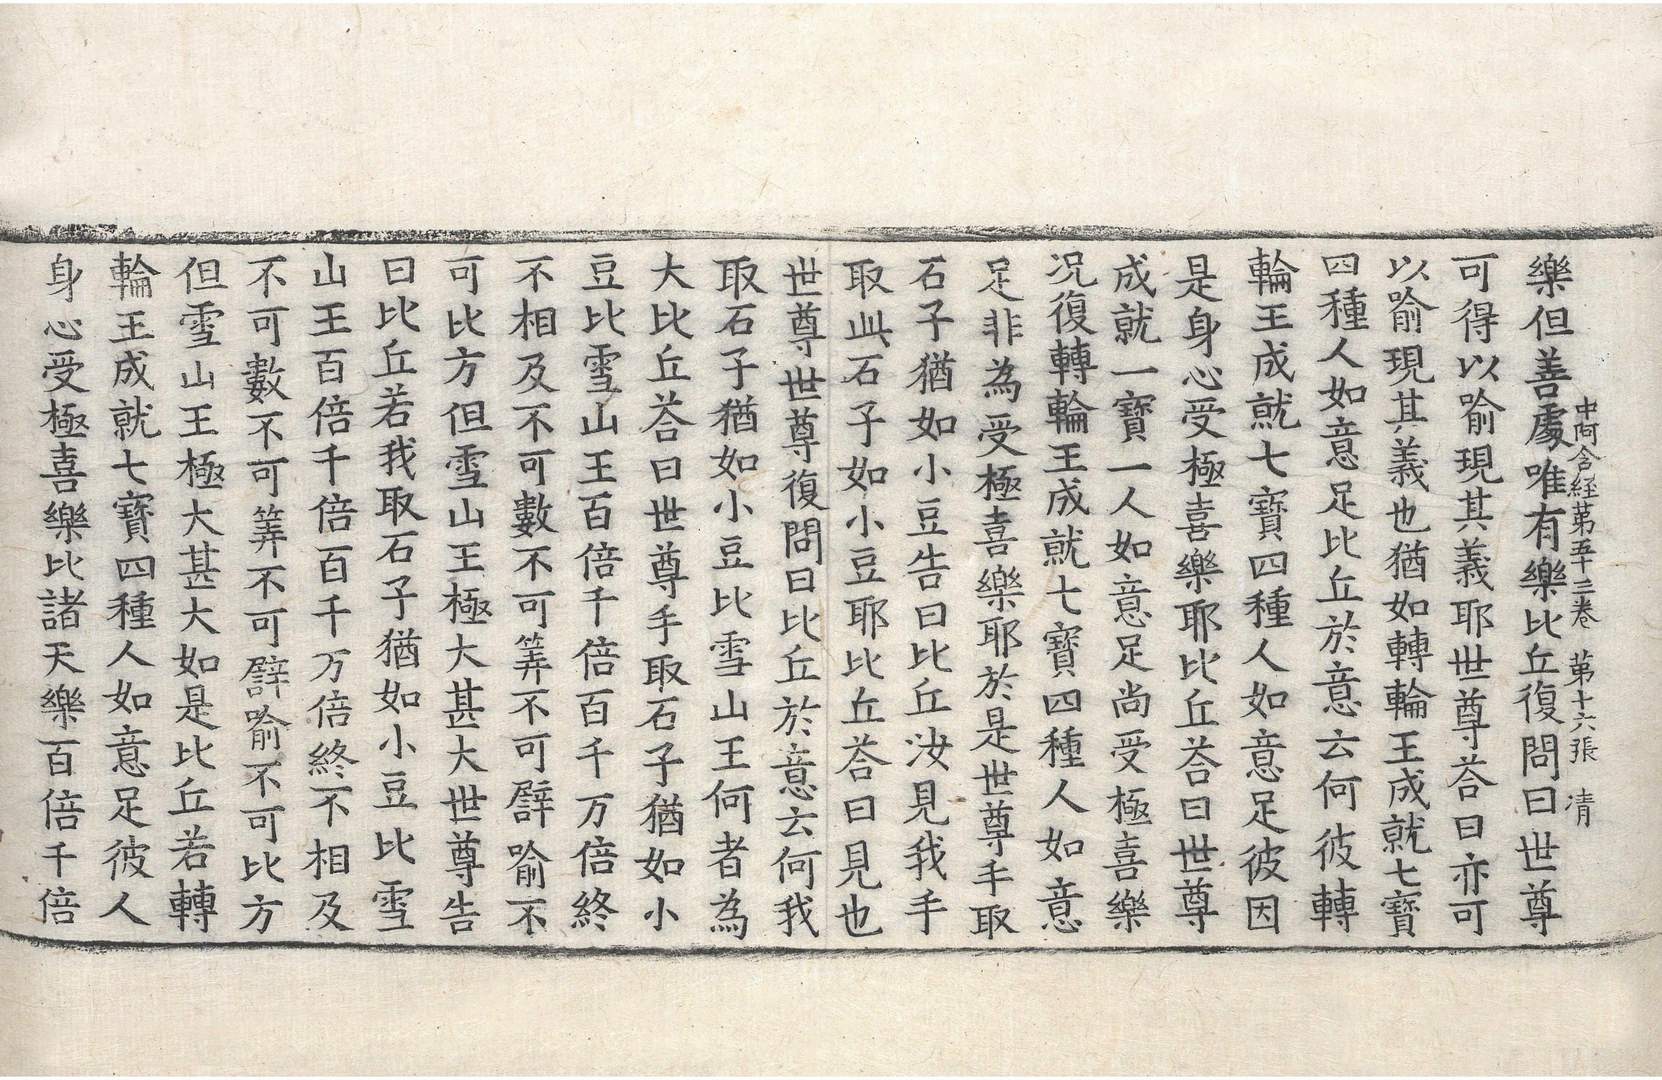 中阿含経第五十三卷 第十六張 清
樂但善處唯有樂比丘復問曰世尊
可得以喻現其義耶世尊荅曰亦可
以喻現其義也猶如轉輪王成就七寶
四種人如意足比丘於意云何彼轉
輪王成就七寶四種人如意足彼因
是身心受極喜樂耶比丘荅曰世尊
成就一寶一人如意足尚受極喜樂
况復轉輪王成就七寶四種人如意
足非為受極喜樂耶於是世尊手取
石子猶如小豆告曰比丘汝見我手
取此石子如小豆耶比丘荅曰見也
世尊世尊復問曰比丘於意云何我
取石子猶如小豆比雪山王何者為
大比丘荅曰世尊手取石子猶如小
豆比雪山王百倍千倍百千万倍終
不相及不可數不可筭不可譬喻不
可比方但雪山王極大甚大世尊告
曰比丘若我取石子猶如小豆比雪
山王百倍千倍百千万倍終不相及
不可數不可筭不可譬喻不可比方
但雪山王極大甚大如是比丘若轉
輪王成就七寶四種人如意足彼人
身心受極喜樂比諸天樂百倍千倍